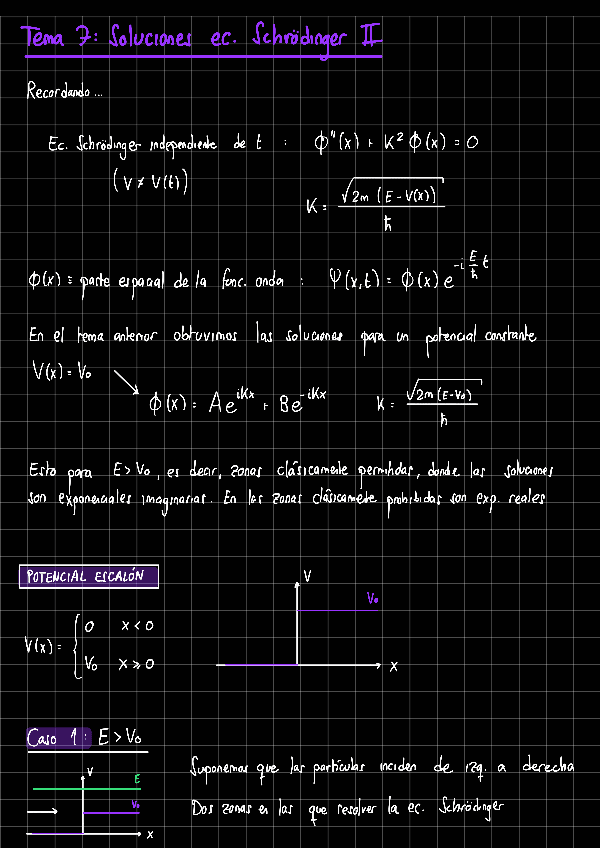 Tema 7: Soluciones ec. Schrödinger II
Recordando...
Ec. Schrödinger independiente de t : ϕ''(x) + K² ϕ(x) = 0
(V ≠ V(t))
K = √2m (E - V(x)) / ħ
ϕ(x) ≡ parte espacial de la func. onda : Ψ(x,t) = ϕ(x) e^(-i E/ħ t)
En el tema anterior obtuvimos las soluciones para un potencial constante
V(x) = V₀
ϕ(x) = A e^(iKx) + B e^(-iKx) K = √2m (E-V₀) / ħ
Esto para E > V₀, es decir, zonas clásicamente permitidas, donde las soluciones
son exponenciales imaginarias. En las zonas clásicamente prohibidas son exp. reales
POTENCIAL ESCALÓN
V
V₀
x
V(x) = { 0 x < 0
V₀ x ≥ 0
Caso 1: E > V₀
V
E
V₀
x
Suponemos que las partículas inciden de izq. a derecha
Dos zonas en las que resolver la ec. Schrödinger